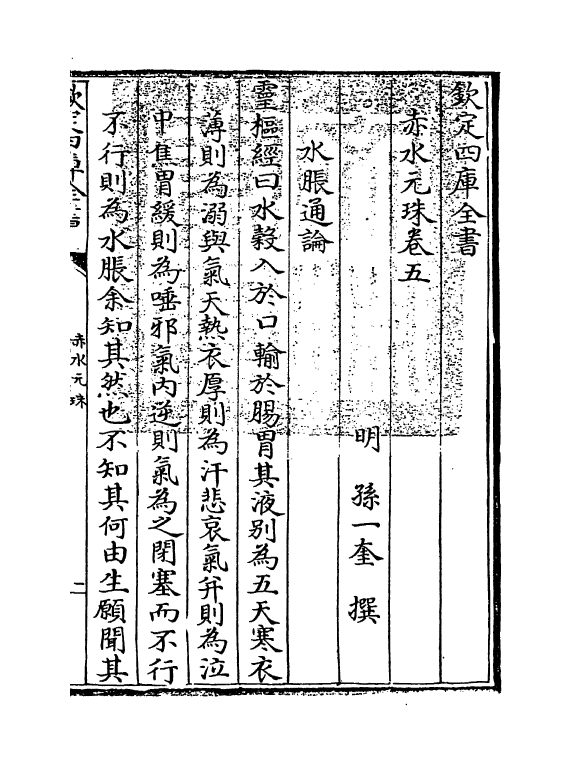 欽定四庫全書
赤水元珠卷五
明　孫一奎　撰
水脹通論
靈樞經曰水穀入於口輸於腸胃其液别為五天寒衣
薄則為溺與氣天熱衣厚則為汗悲哀氣并則為泣
中焦胃緩則為唾邪氣内逆則氣為之閉塞而不行
不行則為水脹余知其然也不知其何由生願聞其
欽定四庫全書
赤水元珠
二